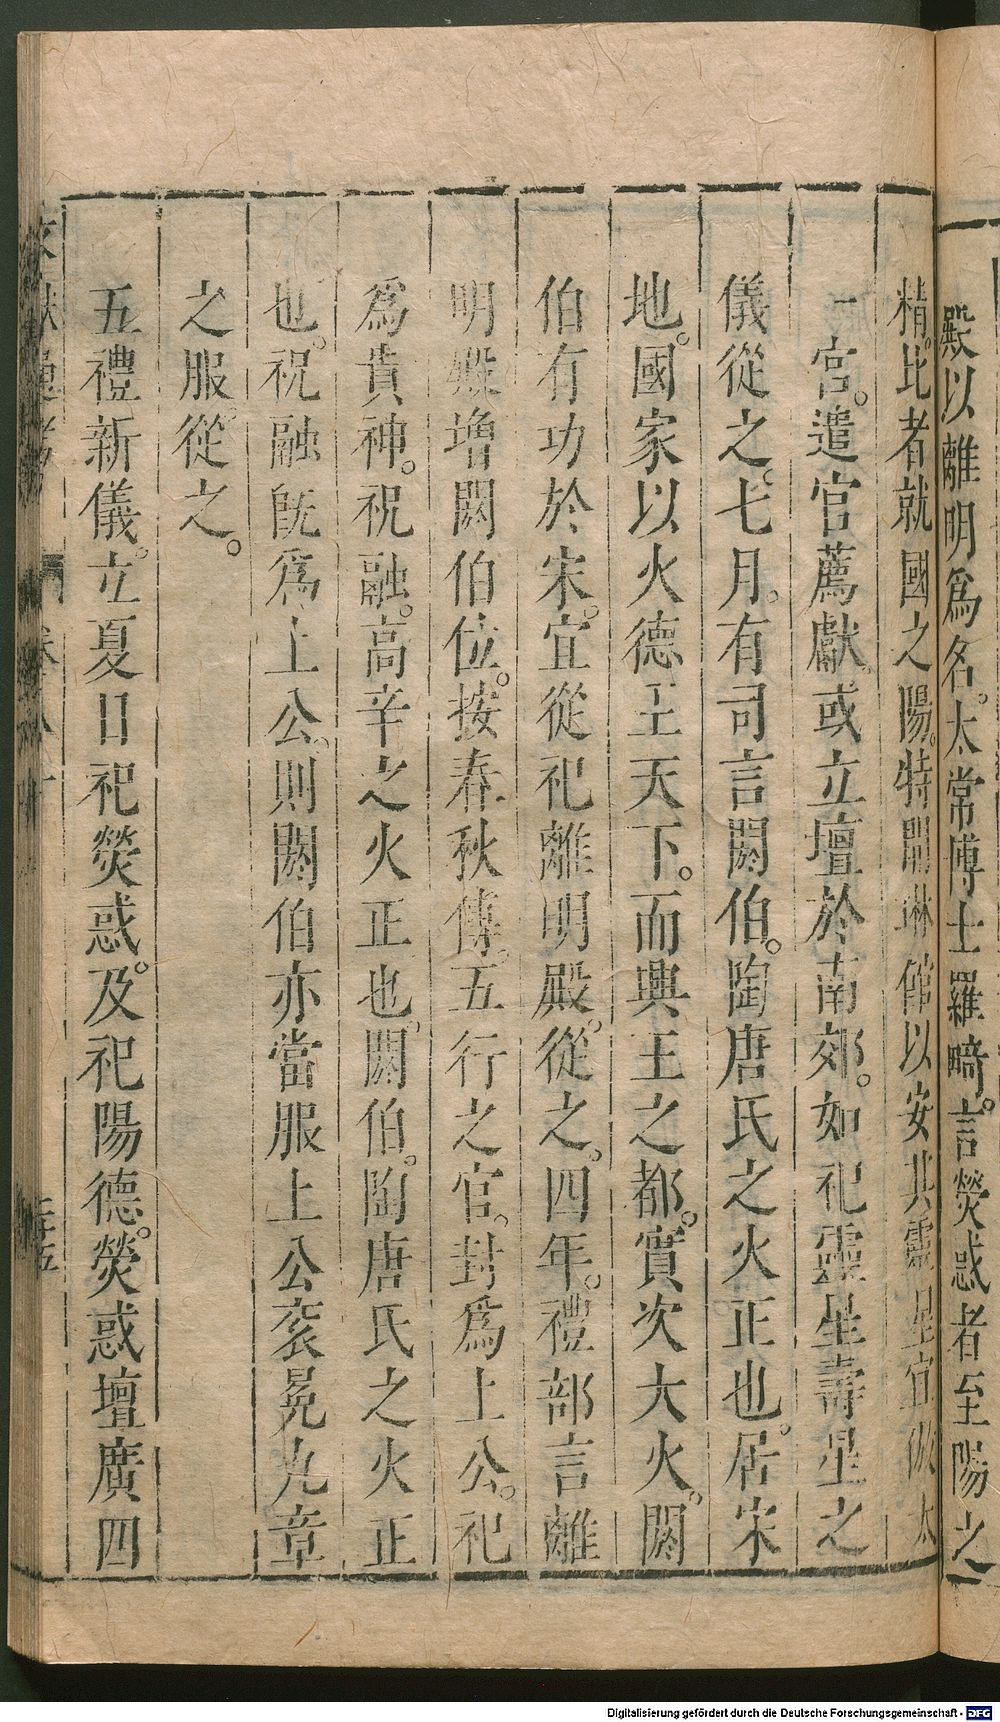 殿以離明爲名。太常博士羅畸。言熒惑者至陽之
精。比者就國之陽。特開琳館以安其靈。是宜倣太
一宮。遣官薦獻。或立壇於南郊。如祀靈星壽星之
儀從之。七月。有司言閼伯。陶唐氏之火正也。居宋
地。國家以火德王天下。而興王之都。實次大火。閼
伯有功於宋。宜從祀離明殿。從之。四年。禮部言離
明殿增閼伯位。按春秋傳。五行之官。封爲上公。祀
爲貴神。祝融。高辛之火正也。閼伯。陶唐氏之火正
也。祝融旣爲上公。則閼伯亦當服上公袞冕九章
之服。從之。
五禮新儀。立夏日祀熒惑。及祀陽德。熒惑壇廣四
文獻通考 卷八十 二十五
Digitalisierung gefördert durch die Deutsche Forschungsgemeinschaft - DFG